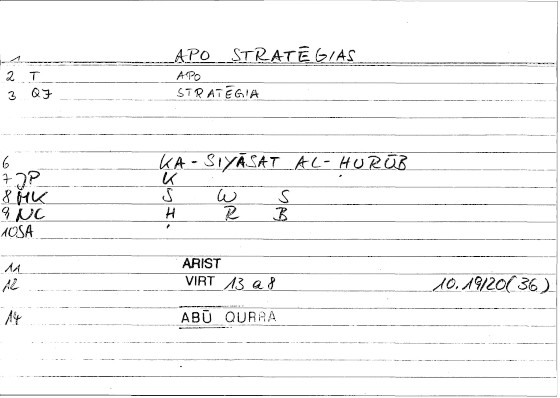 1 APO STRATĒGIAS
2 T APO
3 QJ STRATĒGIA
6 KA-SIYĀSAT AL-ḤURŪB
7 JP K
8 MK S W S
9 NC Ḥ R B
10 SA
11 ARIST
12 VIRT 13 a 8 10.19/20(36)
14 ABŪ QURRA